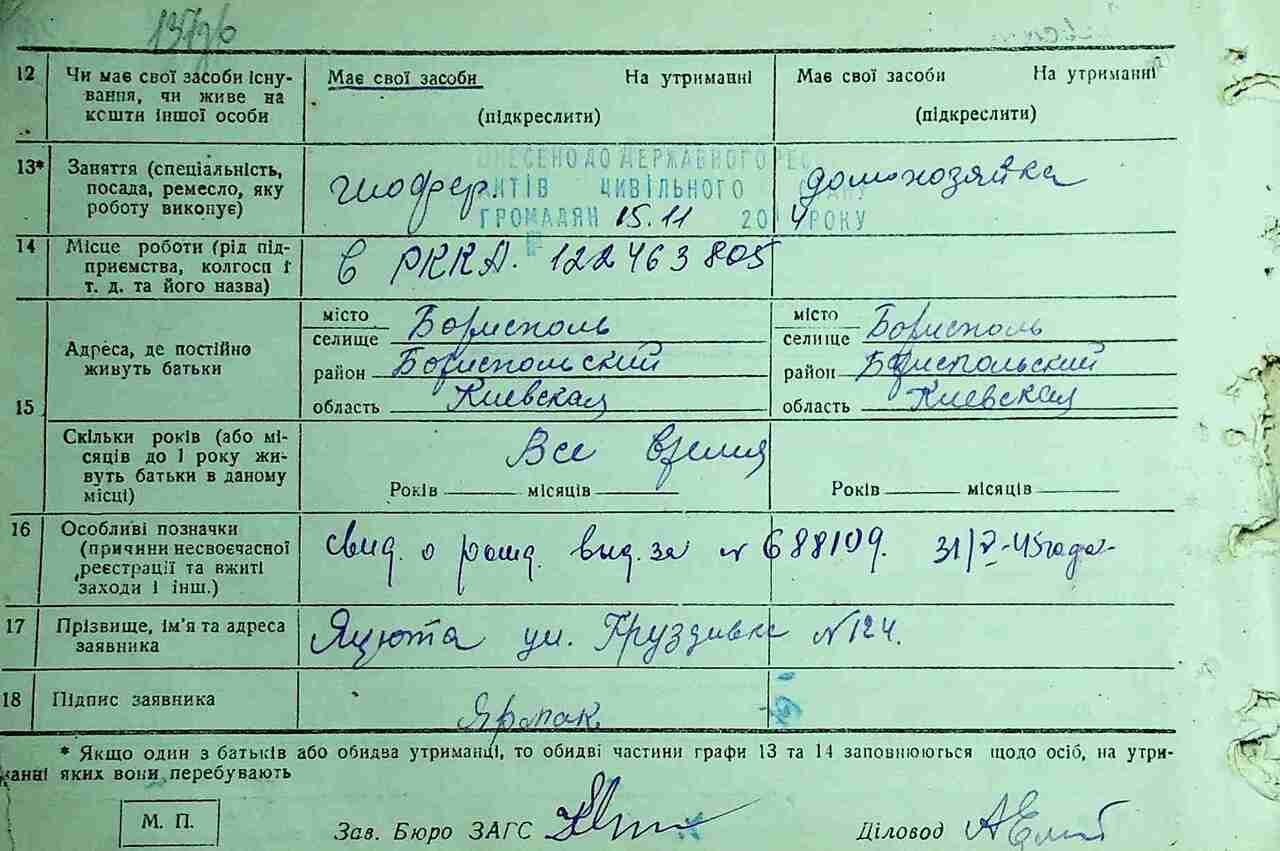 12 Чи має свої засоби існу- Має свої засоби На утриманні Має свої засоби На утриманні
вання, чи живе на
кошти іншої особи (підкреслити) (підкреслити)
13* Заняття (спеціальність, шофер. домохозяйка
посада, ремесло, яку
роботу виконує)
ВНЕСЕНО ДО ДЕРЖАВНОГО РЕЄ
АКТІВ ЦИВІЛЬНОГО СТАНУ
ГРОМАДЯН 15.11 2014 РОКУ
14 Місце роботи (рід під- в РККА. 122463805
приємства, колгосп і
т. д. та його назва)
15 Адреса, де постійно
живуть батьки
місто Борисполь місто Борисполь
селище селище
район Бориспольский район Бориспольский
область Киевская область Киевская
Скільки років (або мі- Все время
сяців до 1 року жи-
вуть батьки в даному
місці) Років місяців Років місяців
16 Особливі позначки свид. о рожд. выд. за № 688109. 31/V-45 года
(причини несвоєчасної
реєстрації та вжиті
заходи і інш.)
17 Прізвище, ім'я та адреса Яцюта ул. Груздивка №124.
заявника
18 Підпис заявника Ярмак
* Якщо один з батьків або обидва утриманці, то обидві частини графи 13 та 14 заповнюються щодо осіб, на утри-
манні яких вони перебувають
М. П. Зав. Бюро ЗАГС Діловод